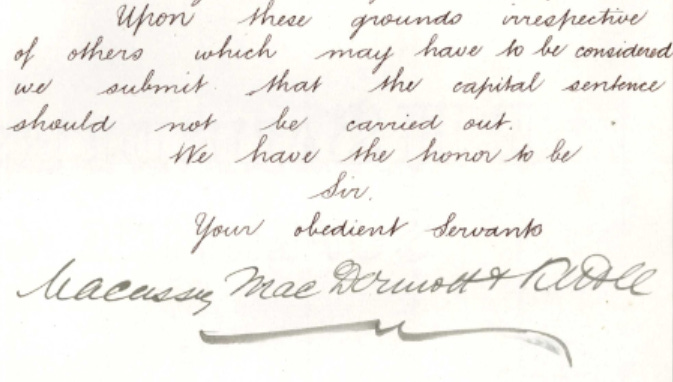 Upon these grounds irrespective
of others which may have to be considered
we submit that the capital sentence
should not be carried out.
We have the honor to be
Sir.
Your obedient Servants
Mac Dermott &